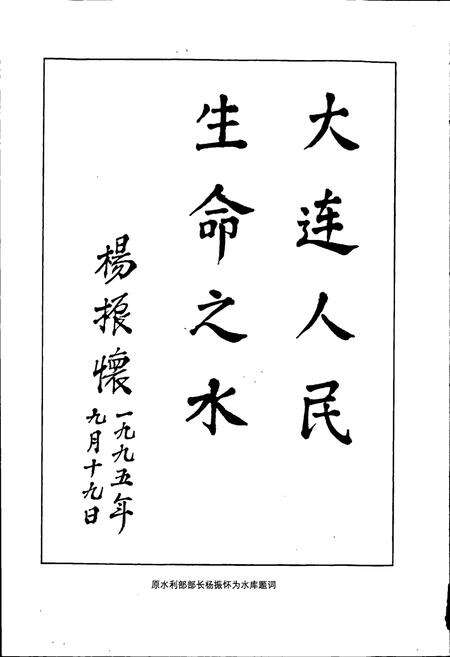 大连人民
生命之水
楊振懷
一九九五年
九月十九日
原水利部部长杨振怀为水库题词